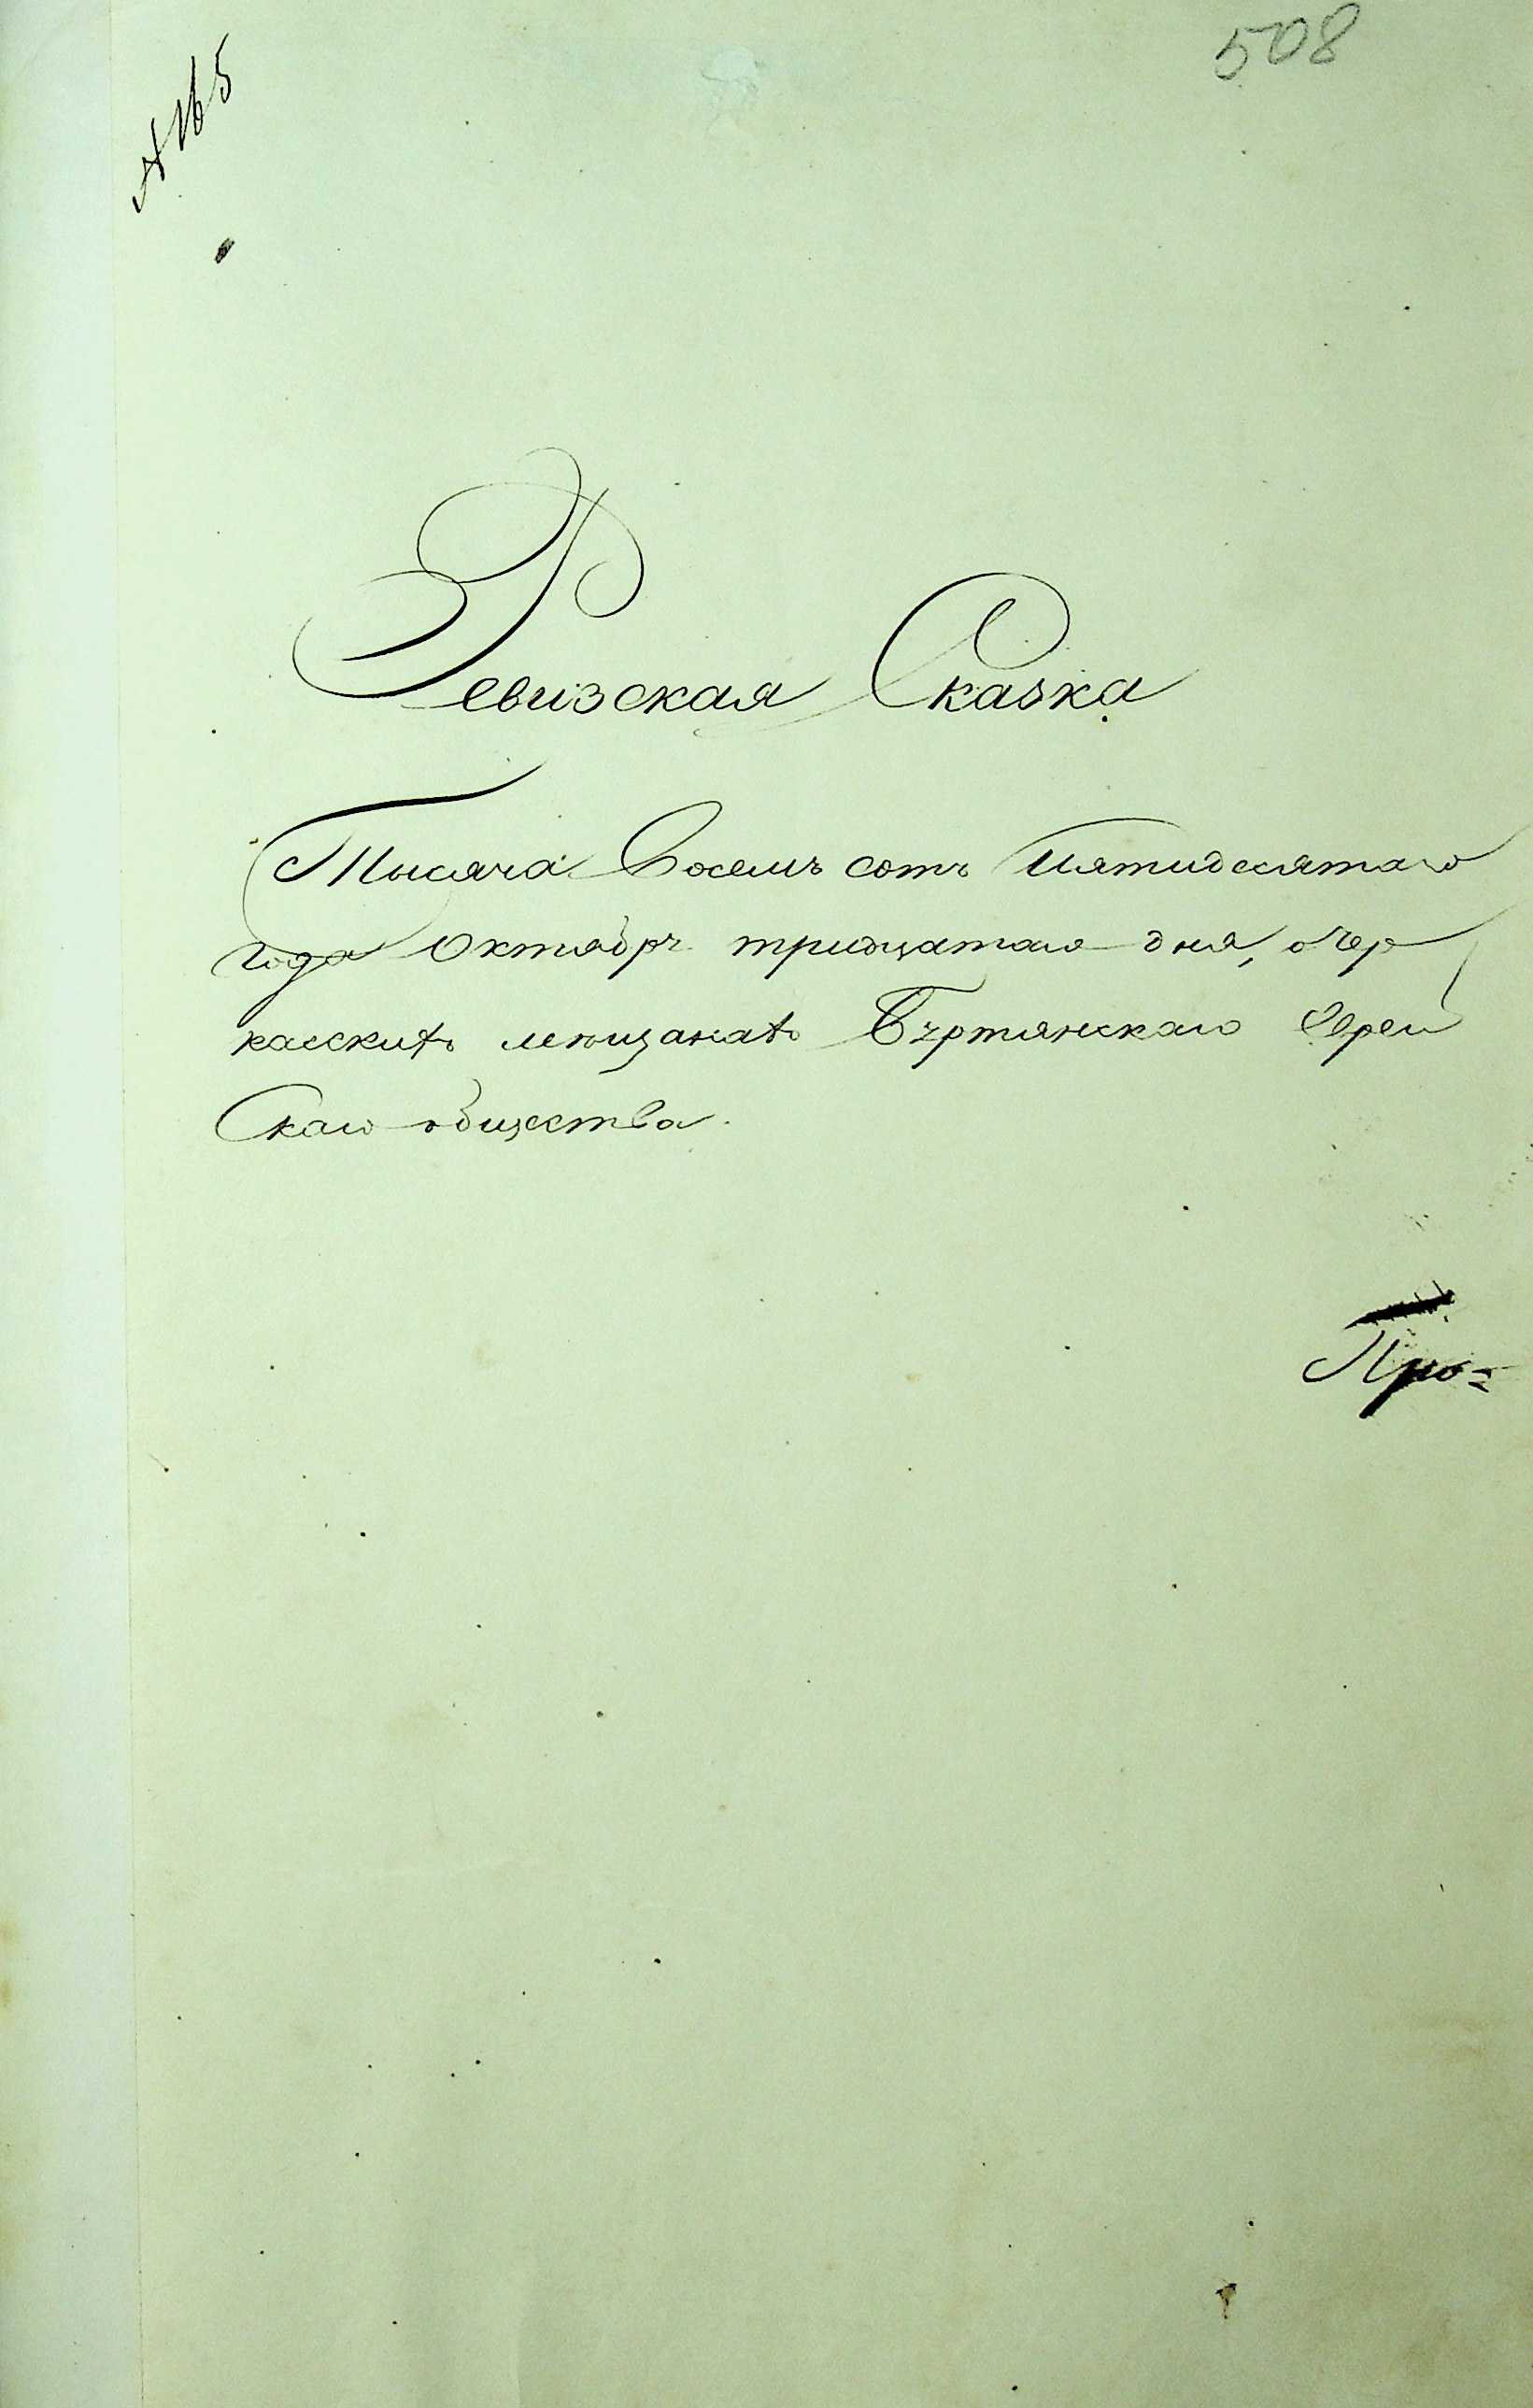 508
№ 165
Ревизская Сказка
Тысяча Восемъ сотъ Пятидесятаго
года Октябр. тридцатаго дня, о Чер
касскихъ мещанахъ Бургянскаго Еврей
Скаго общества.
Про=